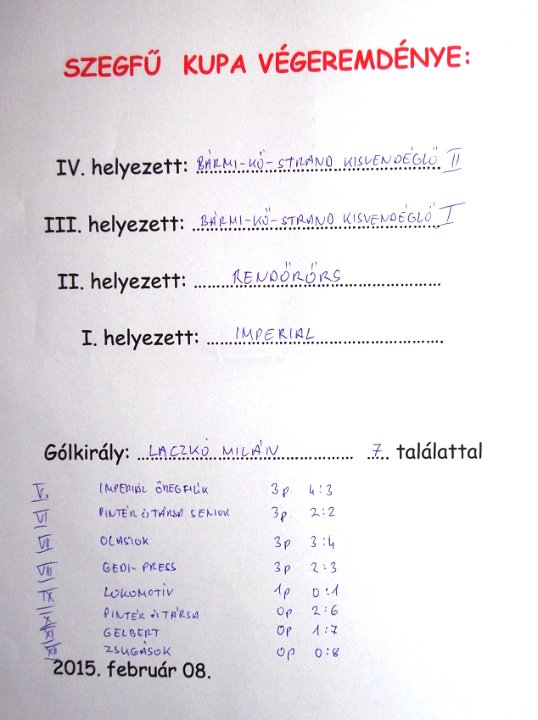 SZEGFŰ KUPA VÉGEREMDÉNYE:
IV. helyezett: BÁRMI-KŐ-STRAND KISVENDÉGLŐ II
III. helyezett: BÁRMI-KŐ-STRAND KISVENDÉGLŐ I
II. helyezett: RENDŐRŐRS
I. helyezett: IMPERIAL
Gólkirály: LACZKÓ MILÁN 7. találattal
V. IMPERIÁL ÖREGFIÚK 3p. 4:3
VI PINTÉR ÉS TÁRSA SENIOR 3p. 2:2
VII OLASIOK 3p 3:4
VIII GEDI-PRESS 3p 2:3
IX LOKOMOTÍV 1p 0:1
X PINTÉR ÉS TÁRSA 0p 2:6
XI GELBERT 0p 1:7
XII ZSUGÁSOK 0p 0:8
2015. február 08.